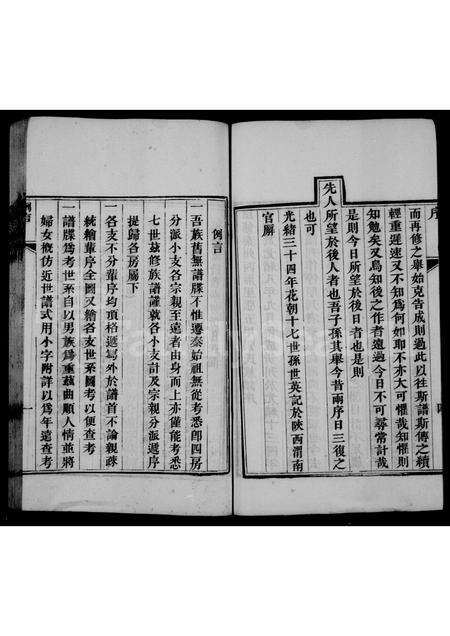 序
而再修之舉始克告成則過此以往斯譜斯傳之續
輕重遲速又不知為何如耶不亦大可懼哉知懼則
知勉矣又烏知後之作者遠過今日不可尋常計哉
是則今日所望於後日者也是則
先人所望於後人者也吾子孫其舉今昔兩序日三復之
也可
光緒三十四年花朝十七世孫世英記於陝西渭南
官廨
例言
一吾族舊無譜牒不惟遷秦始祖無從考悉卽四房
分派小支各宗親至遠者由身而上亦僅能考悉
七世茲修族譜謹就各小支計及宗親分派遞序
提歸各房屬下
一各支不分輩序均頂格遞寫外於譜首不論親疎
統繪輩序全圖又繪各支世系圖考以便查考
一譜牒為考世系自以男族為重茲曲順人情並將
婦女概仿近世譜式用小字附詳以為年遠查考
例言
一